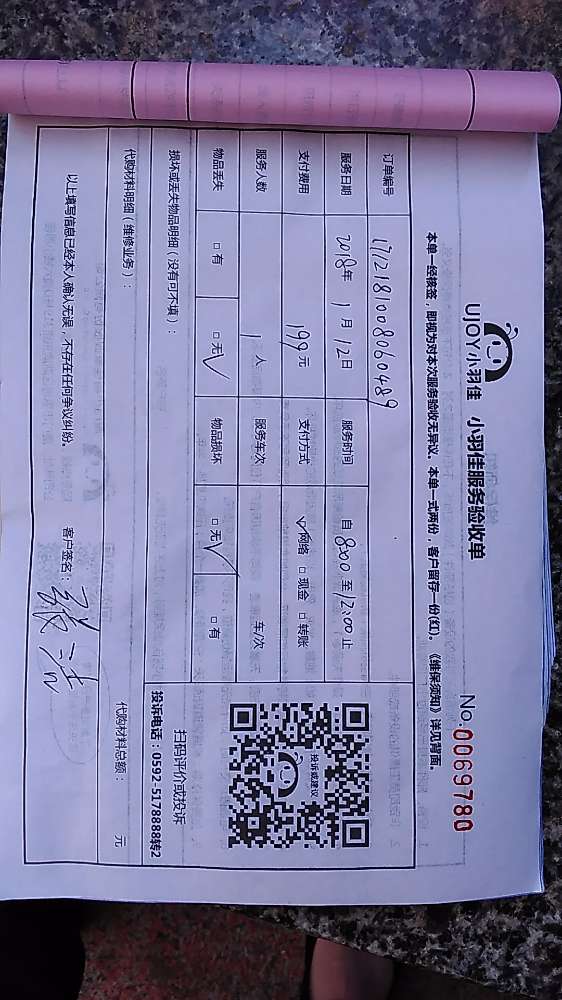 UJOY小羽佳 小羽佳服务验收单
No.0069780
本单一经核签，即视为对本次服务验收无异议。本单一式两份，客户留存一份(红)。《维保须知》详见背面。
订单编号 1712181008060489
服务日期 2018年 1月 12日 服务时间 自 8:00 至 12:00 止
支付费用 199元 支付方式 ☑网络 □现金 □转账
服务人数 1人 服务车次 车/次
物品丢失 □有 ☑无 物品损坏 ☑无 □有
投诉或建议
扫码评价或投诉
投诉电话：0592-5178888转2
损坏或丢失物品明细（没有可不填）：
代购材料明细（维修业务）： 代购材料总额： 元
以上填写信息已经本人确认无误，不存在任何争议纠纷。 客户签名：